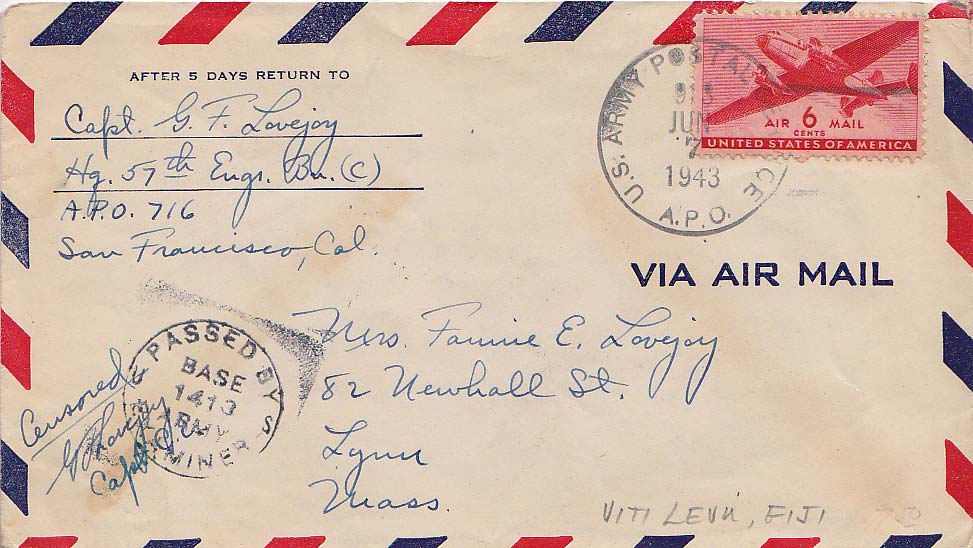 AFTER 5 DAYS RETURN TO
Capt. G. F. Lovejoy
Hq. 57th Engr. Bn. (C)
A.P.O. 716
San Francisco, Cal.
U.S. ARMY POSTAL SERVICE
JUN
7
1943
A.P.O.
AIR 6 MAIL
CENTS
UNITED STATES OF AMERICA
VIA AIR MAIL
Mrs. Fannie E. Lovejoy
82 Newhall St.
Lynn
Mass.
PASSED BY
BASE
1413
ARMY
EXAMINER
Censored
G F Lovejoy
Capt. C.E.
VITI LEVU, FIJI